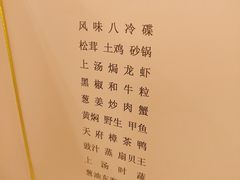 风味八冷碟
松茸土鸡砂锅
上汤焗龙虾
黑椒和牛粒
葱姜炒肉蟹
黄焖野生甲鱼
天府樟茶鸭
豉汁蒸扇贝王
上汤时蔬
葱油东